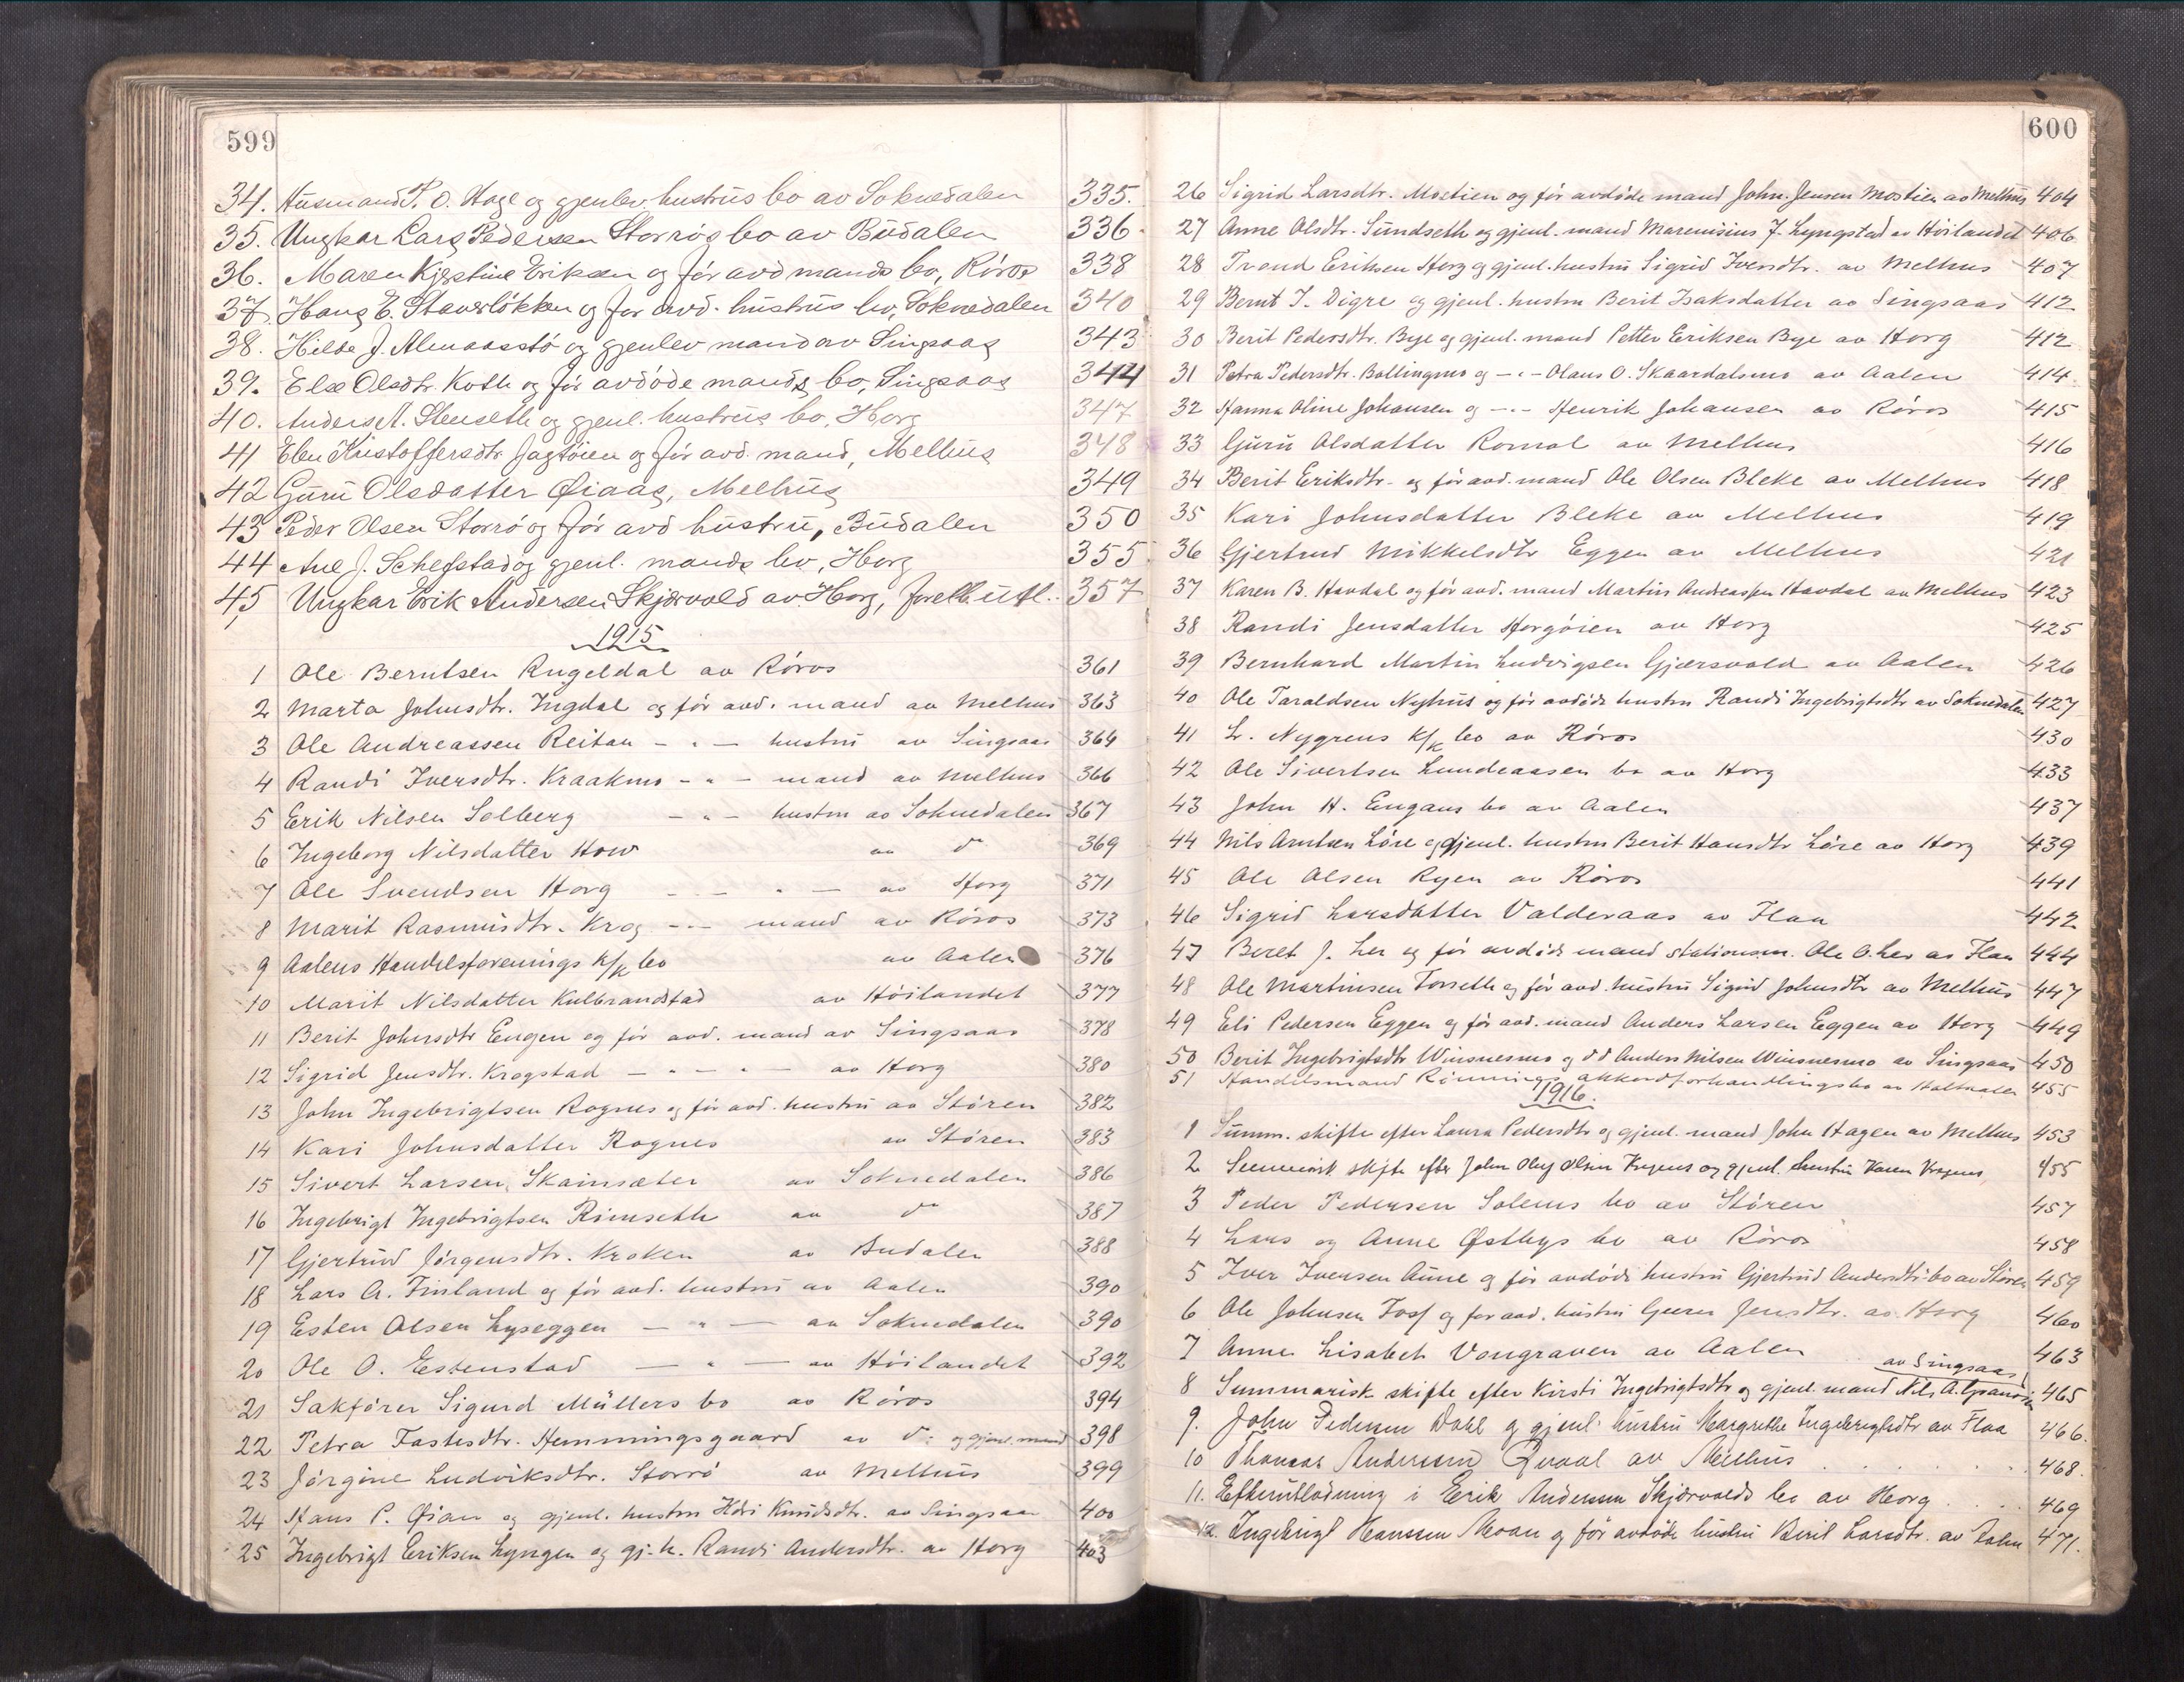 599
34. Husmand P. O. Hage og gjenlev. hustrus bo av Soknedalen 335.
35. Ungkar Lars Pedersen Storrøs bo av Budalen 336.
36. Maren Kjestine Eriksen og før avd mands bo, Røros 338
37. Hans E. Stavsløkken og før avd. hustrus bo, Soknedalen 340
38. Hilde J. Almaasstø og gjenlev mand av Singsaas 343
39. Else Olsdtr. Koth og før avdøde mands bo, Singsaas 344
40. Anders A. Stenseth og gjenl. hustrus bo, Horg 347
41 Elen Kristoffersdtr. Jagtøien og før avd. mand, Melhus 348
42 Guru Olsdatter Øiaas, Melhus 349
43 Peder Olsen Storrø og før avd hustru, Budalen 350
44 Ane J. Schefstad og gjenl. mands bo, Horg 355
45, Ungkar Erik Andersen Skjærvold av Horg, forelb. utl. 357
1915
1 Ole Berntsen Rugeldal av Røros 361
2 Marta Johnsdtr. Ingdal og før avd. mand av Melhus 363
3 Ole Andreassen Reitan - " - hustru av Singsaas 364
4 Randi Iversdtr. Kraakmo - " - mand av Melhus 366
5 Erik Nilsen Solberg - " - hustru av Soknedalen 367
6 Ingeborg Nilsdatter Hov av do 369
7 Ole Svendsen Horg - " - av Horg 371
8 Marit Rasmusdtr. Krog - " - mand av Røros 373
9 Aalens Handelsforenings k/k bo av Aalen 376
10 Marit Nilsdatter Kulbrandstad av Høilandet 377
11 Berit Johnsdtr Engen og før avd. mand av Singsaas 378
12 Sigrid Jensdtr. Krogstad - " - " - av Horg 380
13 John Ingebrigtsen Rognes og før avd. hustru av Støren 382
14 Kari Johnsdatter Rognes av Støren 383
15 Sivert Larsen Skainsæter av Soknedalen 386
16 Ingebrigt Ingebrigtsen Rimseth av do 387
17 Gjertrud Jørgensdtr. Kroken av Budalen 388
18 Lars A. Finland og før avd. hustru av Aalen 390
19 Esten Olsen Lyseggen - " - av Soknedalen 390
20 Ole O. Estenstad - " - av Høilandet 392
21 Sakfører Sigurd Müllers bo av Røros 394
22 Petra Fastesdtr. Hemmingsgaard av do og gjenl. mand 398
23 Jørgine Ludviksdtr. Storrø av Melhus 399
24 Hans P. Øian og gjenl. hustru Knudsdtr. av Singsaas 400
25 Ingebrigt Eriksen Lyngen og gj. h. Randi Andersdtr. av Horg 403
600
26 Sigrid Larsdtr. Mostien og før avdøde mand John Jensen Mostien av Melhus 404
27 Anne Olsdtr. Sundseth og gjenl. mand Marenisius J. Lyngstad av Høilandet 406
28 Trond Eriksen Horg og gjenl. hustru Sigrid Iversdtr. av Melhus 407
29 Bernt J. Digre og gjenl. hustru Berit Isaksdatter av Singsaas 412
30 Berit Pedersdtr. Bye og gjenl. mand Petter Eriksen Bye av Horg 412
31 Petra Pedersdtr. Bollingmo og - " - Olaus O. Skaardalsmo av Aalen 414
32 Hanna Oline Johansen og - " - Henrik Johansen av Røros 415
33 Guru Olsdatter Romol av Melhus 416
34 Berit Eriksdtr. og før avd. mand Ole Olsen Bleke av Melhus 418
35 Kari Johnsdatter Bleke av Melhus 419
36 Gjertrud Mikkelsdtr Eggen av Melhus 421
37 Karen B. Havdal og før avd. mand Martin Andreassen Havdal av Melhus 423
38 Randi Jensdatter Horgøien av Horg 425
39 Bernhard Martin Ludvigsen Gjærsvold av Aalen 426
40 Ole Taraldsen Nyhus og før avdøde hustru Randi Ingebrigtsdtr av Soknedalen 427
41 L. Nygrens k/k bo av Røros 430
42 Ole Sivertsen Lundeaasen bo av Horg 433
43 John H. Engans bo av Aalen 437
44 Nils Arntsen Løre og gjenl. hustru Berit Hansdtr Løre av Horg 439
45 Ole Olsen Ryen av Røros 441
46 Sigrid Larsdatter Valderaas av Flaa 442
47 Beret J. Ler og før avdøde mand stationsm. Ole O. Ler av Flaa 444
48 Ole Martinsen Forseth og før avd. hustru Sigrid Johnsdtr av Melhus 447
49 Eli Pedersen Eggen og før avd. mand Anders Larsen Eggen av Horg 449
50 Berit Ingebrigtsdtr Winsnesmo og d d Anders Nilsen Winsnesmo av Singsaas 450
51 Handelsmand Rønnings akkordforhandlingsbo av Holtaalen 455
1916.
1 Summ. skifte efter Laura Pedersdtr og gjenl. mand John Hagen av Melhus 453
2 Summarisk skifte efter John Oluf Olsen Krogens og gjenl. hustru Karen Krogens 455
3 Peder Pedersen Solems bo av Støren 457
4 Lars og Anne Østbys bo av Røros 458
5 Iver Iversen Aune og før avdøde hustru Gjertrud Andersdtr. bo av Støren 459
6 Ole Johnsen Foss og før avd. hustru Guru Jensdtr. av Horg 460
7 Anne Lisabeth Vongraven av Aalen 463
av Singsaas
8 Summarisk skifte efter Kirsti Ingebrigtsdtr og gjenl. mand Nils A. 465
9. John Pedersen Dahl og gjenl. hustru Margrethe Ingebrigtsdtr av Flaa 466.
10 Thomas Andersen Kvaal av Melhus 468.
11. Efterutlodning i Erik Andersen Skjærvolds bo av Horg 469
12. Ingebrigt Hanssen Moan og før avdøde hustru Beril Larsdtr. av Aalen 471.